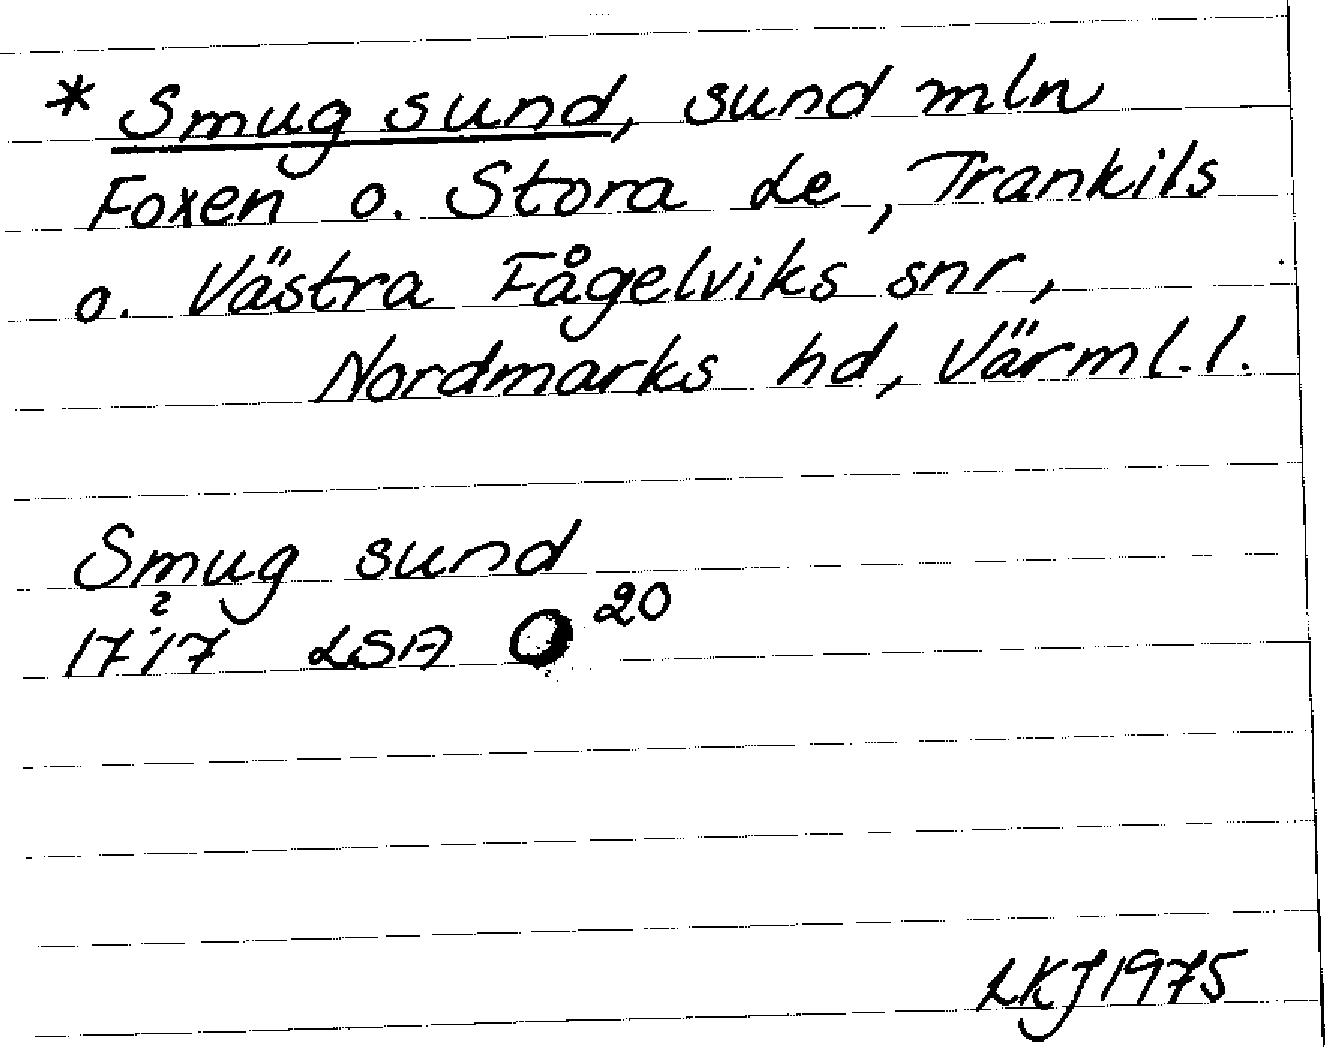 * Smug sund, sund mln
Foxen o. Stora Le, Trankils
o. Västra Fågelviks snr,
Nordmarks hd, Värml. l.
Smug sund
17?17 LSA O 20
LKJ 1975